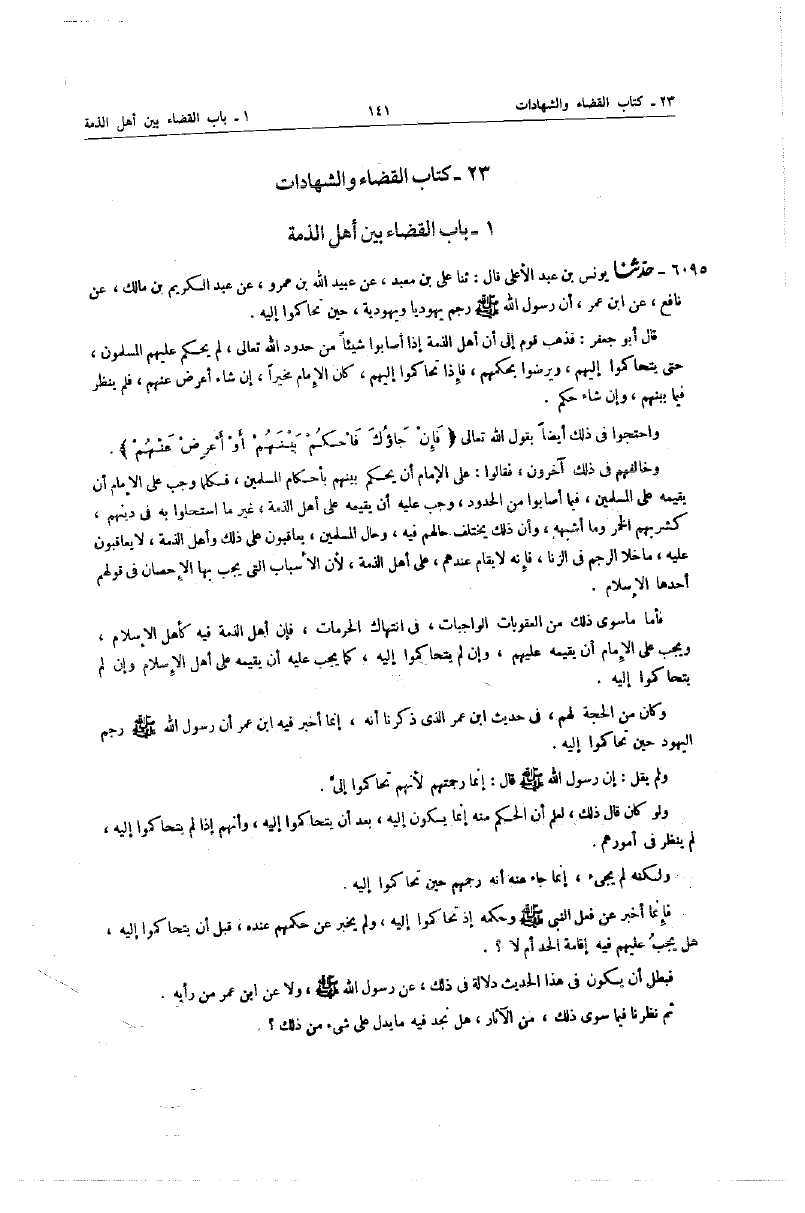 ٢٣ ـ كتاب القضاء والشهادات
١٤١
١ ـ باب القضاء بين أهل الذمة
٢٣ ـ كتاب القضاء والشهادات
١ ـ باب القضاء بين أهل الذمة
٦٠٩٥ ـ حدثنا يونس بن عبد الأعلى قال : ثنا على بن معبد ، عن عبيد الله بن عمرو ، عن عبد الكريم بن مالك ، عن
نافع ، عن ابن عمر ، أن رسول الله ﷺ رجم يهوديا ويهودية ، حين تحاكموا إليه .
قال أبو جعفر : فذهب قوم إلى أن أهل الذمة إذا أصابوا شيئاً من حدود الله تعالى ، لم يحكم عليهم المسلمون ،
حتى يتحاكموا إليهم ، ويرضوا بحكمهم ، فإذا تحاكموا إليهم ، كان الإمام مخيراً ، إن شاء أعرض عنهم ، فلم ينظر
فيما بينهم ، وإن شاء حكم .
واحتجوا فى ذلك أيضاً بقول الله تعالى ﴿ فَإِنْ جَاؤُكَ فَاحْكُمْ بَيْنَهُمْ أَوْ أَعْرِضْ عَنْهُمْ ﴾ .
وخالفهم فى ذلك آخرون ، فقالوا : على الإمام أن يحكم بينهم بأحكام المسلمين ، فكلما وجب على الإمام أن
يقيمه على المسلمين ، فيما أصابوا من الحدود ، وجب عليه أن يقيمه على أهل الذمة ، غير ما استحلوا به فى دينهم ،
كشربهم الخمر وما أشبهه ، وأن ذلك يختلف حالهم فيه ، وحال المسلمين ، يعاقبون على ذلك وأهل الذمة ، لايعاقبون
عليه ، ماخلا الرجم فى الزنا ، فإنه لايقام عندهم ، على أهل الذمة ، لأن الأسباب التى يجب بها الإحصان فى قولهم
أحدها الإسلام .
فأما ماسوى ذلك من العقوبات الواجبات ، فى انتهاك الحرمات ، فإن أهل الذمة فيه كأهل الإسلام ،
ويجب على الإمام أن يقيمه عليهم ، وإن لم يتحاكموا إليه ، كما يجب عليه أن يقيمه على أهل الإسلام وإن لم
يتحاكموا إليه .
وكان من الحجة لهم ، فى حديث ابن عمر الذى ذكرنا أنه ، إنما أخبر فيه ابن عمر أن رسول الله ﷺ رجم
اليهود حين تحاكموا إليه .
ولم يقل : إن رسول الله ﷺ قال : إنما رجمتهم لأنهم تحاكموا إلىَّ .
ولو كان قال ذلك ، لعلم أن الحكم منه إنما يكون إليه ، بعد أن يتحاكموا إليه ، وأنهم إذا لم يتحاكموا إليه ،
لم ينظر فى أمورهم .
ولكنه لم يجىء ، إنما جاء عنه أنه رجمهم حين تحاكموا إليه .
فإنما أخبر عن فعل النبى ﷺ وحكمه إذ تحاكموا إليه ، ولم يخبر عن حكمهم عنده ، قبل أن يتحاكموا إليه ،
هل يجبُ عليهم فيه إقامة الحد أم لا ؟ .
فبطل أن يكون فى هذا الحديث دلالة فى ذلك ، عن رسول الله ﷺ ، ولا عن ابن عمر من رأيه .
ثم نظرنا فيما سوى ذلك ، من الآثار ، هل نجد فيه مايدل على شىء من ذلك ؟ .